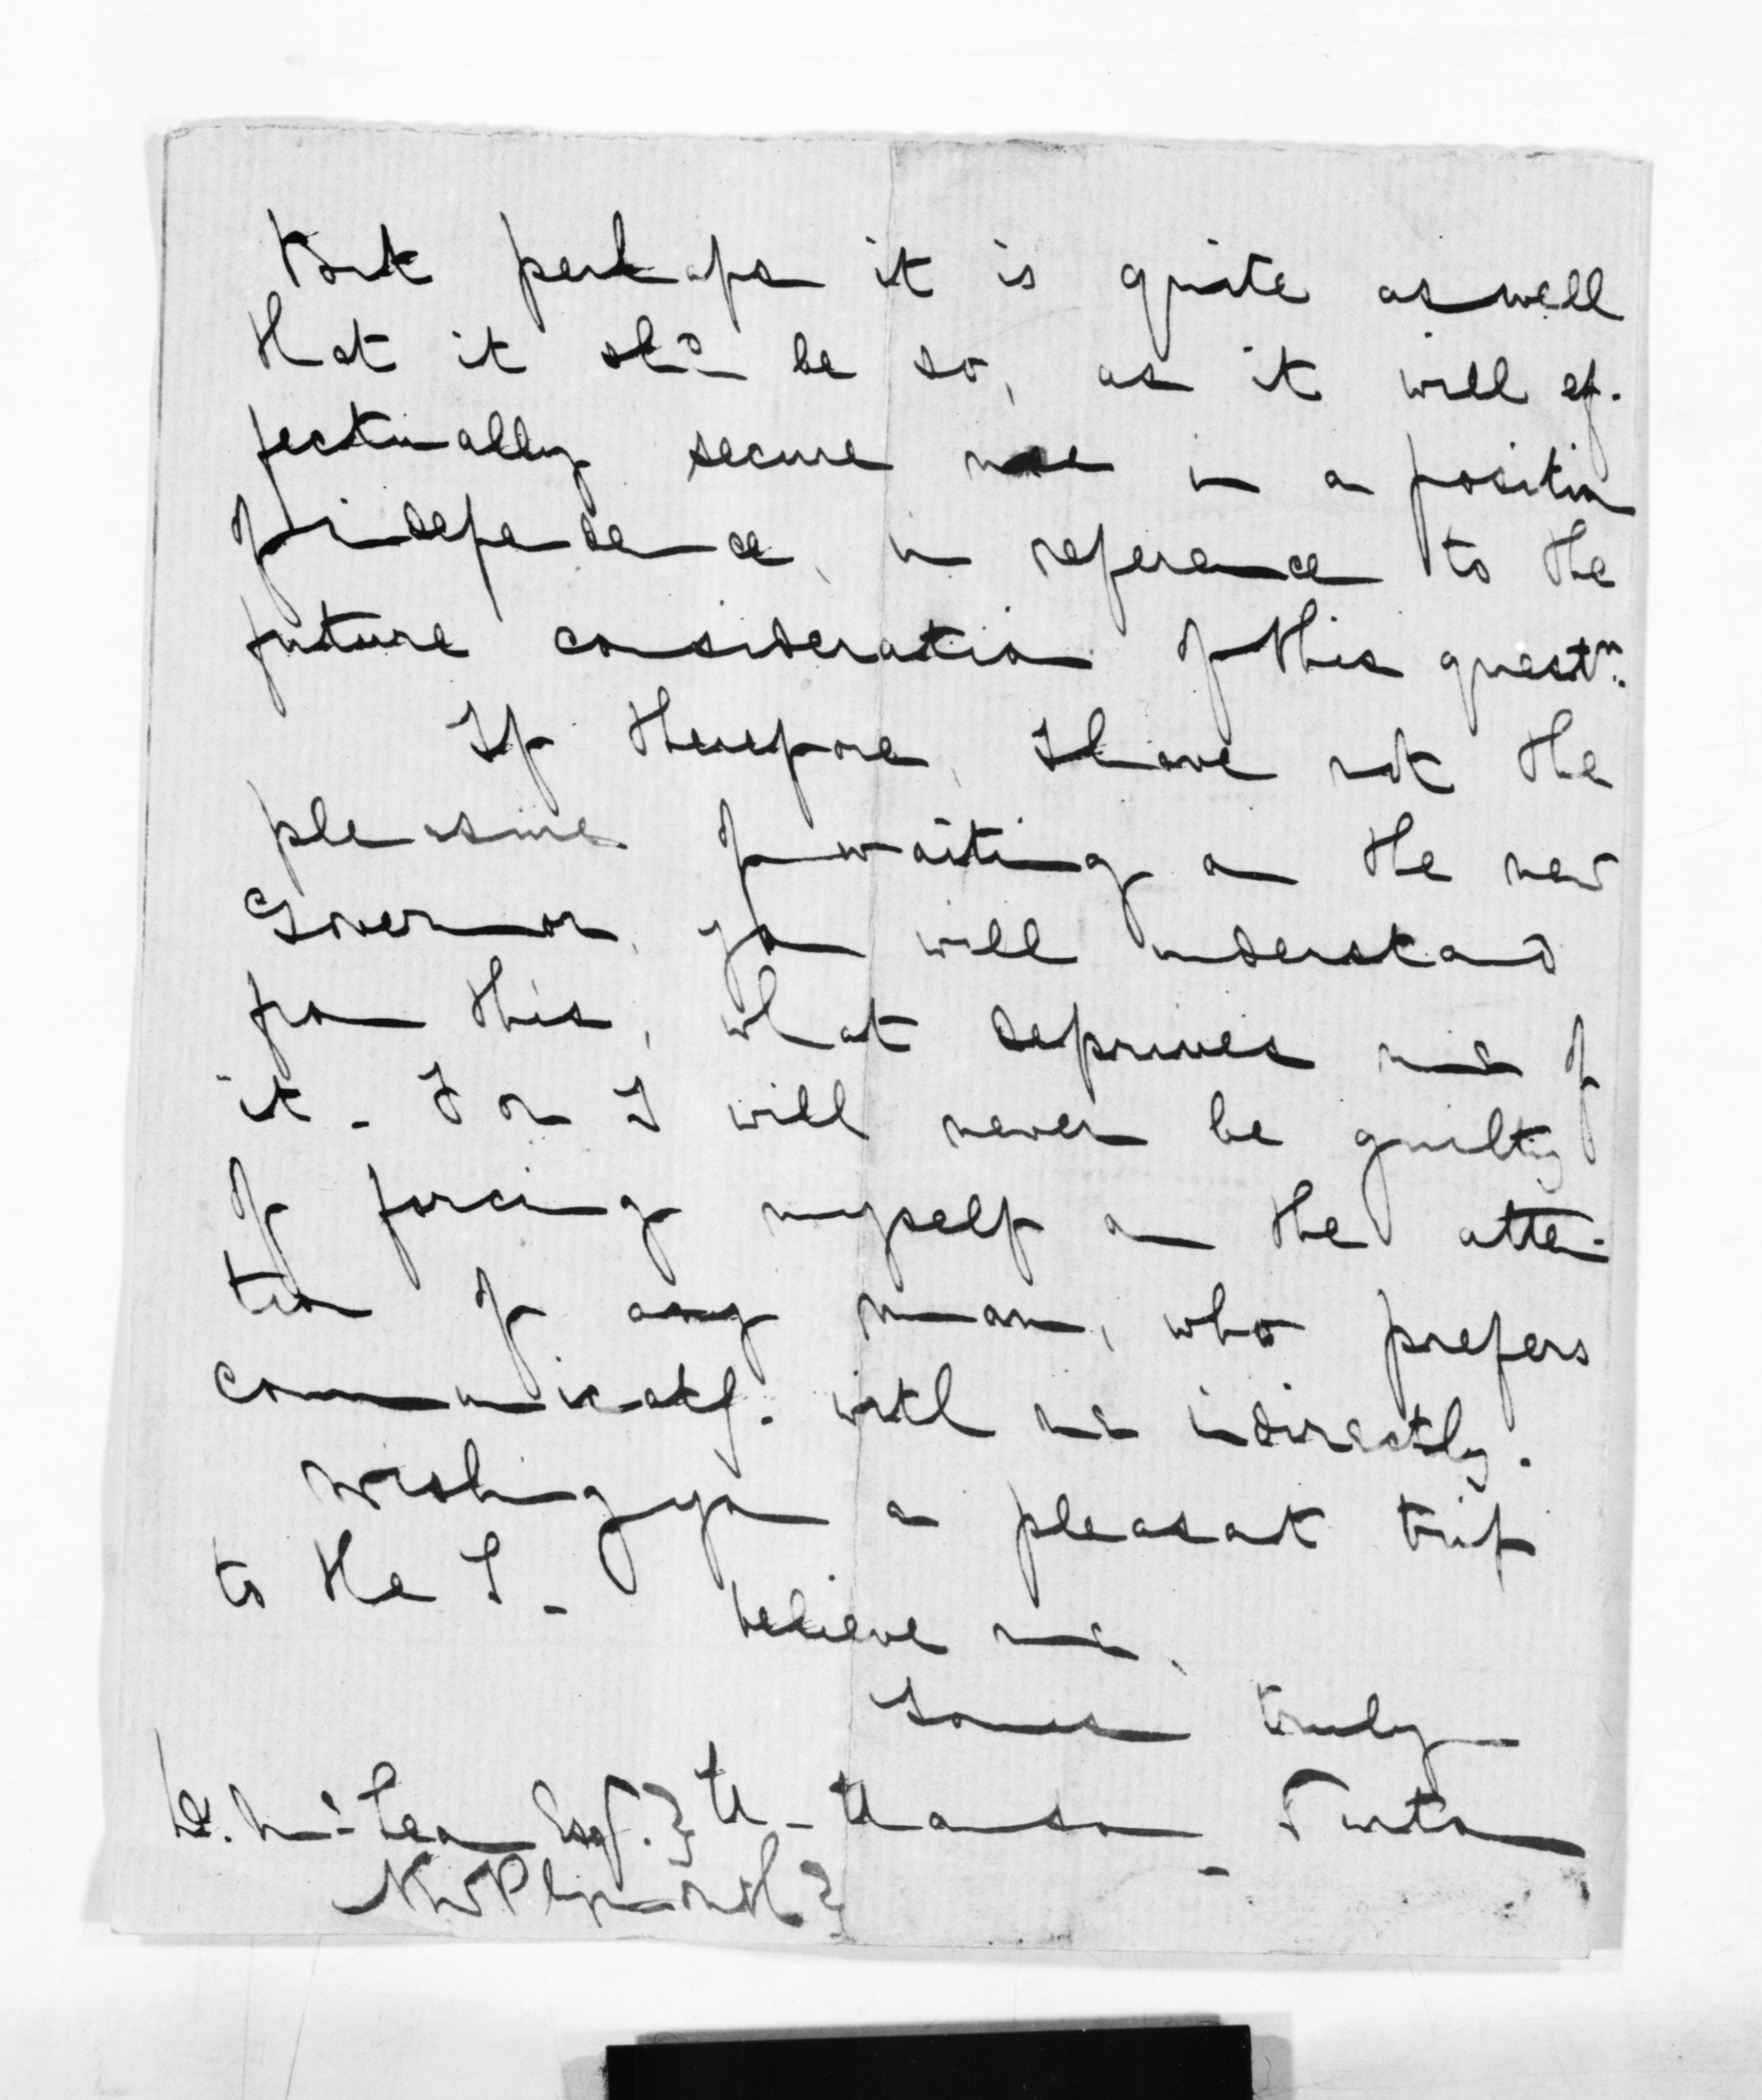 But perhaps it is quite as well
that it shd be so, as it will ef-
fectually secure me in a position
of independence, in reference to the
future consideration of this questn.
If therefore, I have not the
pleasure of waiting on the new
Governor, you will understand
from this, what deprives me of
it - For I will never be guilty
of forcing myself on the atten-
tion of any man, who prefers
communicatg. with me indirectly.
Wishing you a pleasant trip
to the S -
believe me,
Yours truly
Turton
McLean Esq. }
New Plymouth }